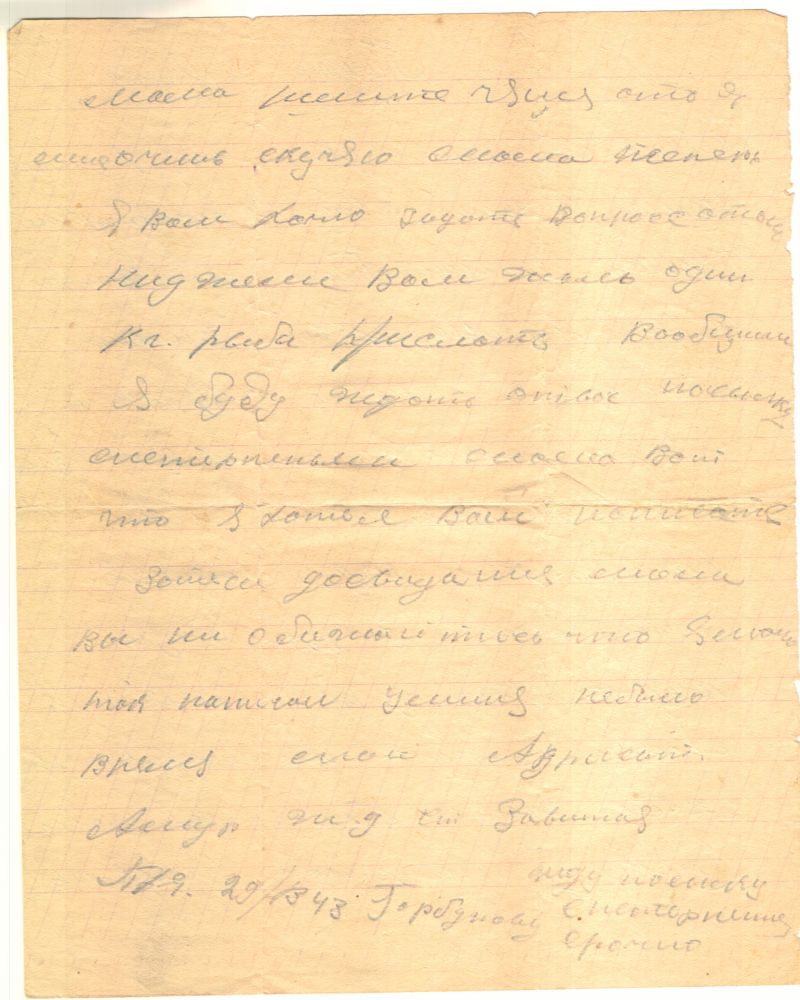 Мама пишите чяще ато я
очинь скучяю мама теперь
я Вам хочю задать Вопрос
Вам жаль один
Кг. рыба прислать Вообщим
Я буду ждать отвас посылку
снетирпеньем мама Вот
что я хотел Вам написать
Затем досвидания мама
Вы ни обижайтись что я
так написал уменя небыло
время мой Адрисат
Амур ж.д ст Завитая
П/я. 29/В 43 Горбунову
жду посылку
снетерпением
срочно